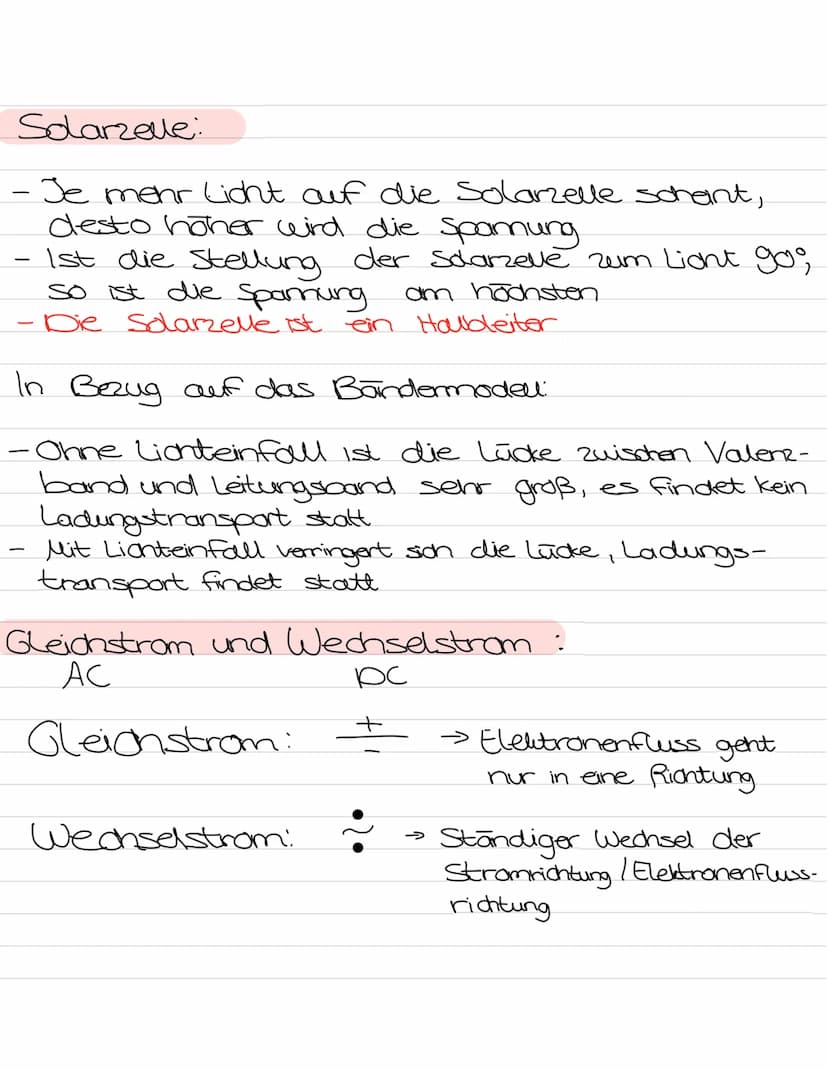 Solarzelle:
- Je mehr Licht auf die Solarzelle scheint,
desto höher wird die Spannung
- Ist die Stellung der Solarzelle zum Licht 90°,
so ist die Spannung am höchsten
- Die Solarzelle ist ein Halbleiter
In Bezug auf das Bändermodell:
- Ohne Lichteinfall ist die Lücke zwischen Valenz-
band und Leitungsband sehr groß, es findet kein
Ladungstransport statt
- Mit Lichteinfall verringert sich die Lücke, Ladungs-
transport findet statt
Gleichstrom und Wechselstrom :
AC DC
Gleichstrom: + - → Elektronenfluss geht
nur in eine Richtung
Wechselstrom: ~ → Ständiger Wechsel der
Stromrichtung / Elektronenfluss-
richtung